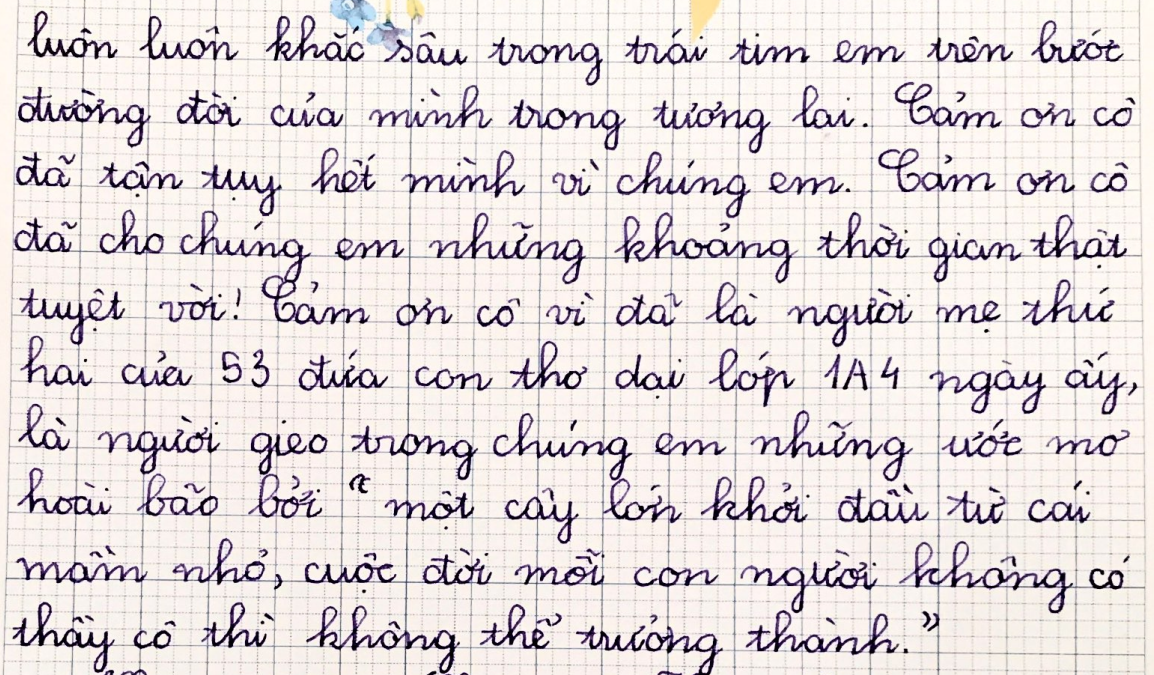 luôn luôn khắc sâu trong trái tim em trên bước
đường đời của mình trong tương lai. Cảm ơn cô
đã tận tụy hết mình vì chúng em. Cảm ơn cô
đã cho chúng em những khoảng thời gian thật
tuyệt vời! Cảm ơn cô vì đã là người mẹ thứ
hai của 53 đứa con thơ dại lớp 1A4 ngày ấy,
là người gieo trong chúng em những ước mơ
hoài bão bởi “một cây lớn khởi đầu từ cái
mầm nhỏ, cuộc đời mỗi con người không có
thầy cô thì không thể trưởng thành.”